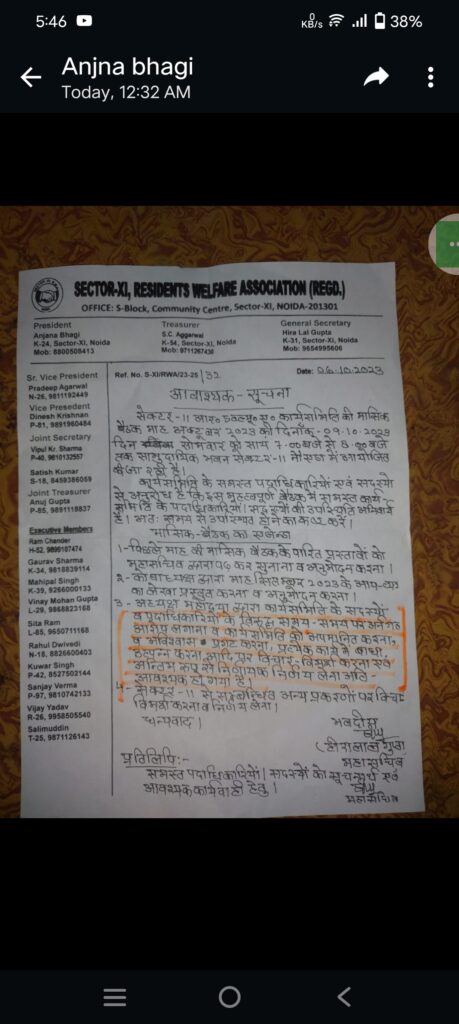 5:46
0 KB/s
38%
Anjna bhagi
Today, 12:32 AM
SECTOR-XI, RESIDENTS WELFARE ASSOCIATION (REGD.)
OFFICE: S-Block, Community Centre, Sector-XI, NOIDA-201301
President
Anjana Bhagi
K-24, Sector-XI, Noida
Mob: 8800508413
Treasurer
S.C. Aggarwal
K-54, Sector-XI, Noida
Mob: 9711267430
General Secretary
Hira Lal Gupta
K-31, Sector-XI, Noida
Mob: 9654995606
Sr. Vice President
Pradeep Agarwal
N-26, 9811192449
Vice Presedent
Dinesh Krishnan
P-81, 9891960484
Joint Secretary
Vipul Kr. Sharma
P-40, 9810132557
Satish Kumar
S-18, 8459386059
Joint Treasurer
Anuj Gupta
P-85, 9891118837
Executive Members
Ram Chander
H-52, 9899107474
Gaurav Sharma
K-34, 9818839114
Mahipal Singh
K-39, 9266000133
Vinay Mohan Gupta
L-29, 9868823168
Sita Ram
L-85, 9650711168
Rahul Dwivedi
N-18, 8826600403
Kuwar Singh
P-42, 8527502144
Sanjay Verma
P-97, 9810742133
Vijay Yadav
R-26, 9958505540
Salimuddin
T-25, 9871126143
Ref. No. S-XI/RWA/23-25/32
Date: 06.10.2023
आवश्यक - सूचना
सेक्टर-11 आर० डब्ल्यू० ए० कार्यसमिति की मासिक
बैठक माह अक्टूबर 2023 की दिनाँक- 09.10.2023
दिन सोमवार को सायं 7-00 बजे से 8-00 बजे
तक सामुदायिक भवन सेक्टर-11 नोएडा में आयोजित
की जा रही है।
कार्यसमिति के समस्त पदाधिकारियों एवं सदस्यों
से अनुरोध है कि इस महत्वपूर्ण बैठक में समस्त कार्य-
समिति के पदाधिकारियों/सदस्यों की उपस्थिति अनिवार्य
है। अतः समय से उपस्थित होने का कष्ट करें।
मासिक-बैठक का एजेन्डा
1- पिछले माह की मासिक बैठक के पारित प्रस्तावों को
महासचिव द्वारा पढ कर सुनाना व अनुमोदन करना।
2- कोषाध्यक्ष द्वारा माह सितम्बर 2023 के आय-व्यय
का लेखा प्रस्तुत करना व अनुमोदन करना।
3- अध्यक्ष महोदया द्वारा कार्यसमिति के सदस्यों
व पदाधिकारियों के विरुद्ध समय-समय पर अनर्गल
आरोप लगाना व कार्यसमिति को अपमानित करना,
व अविश्वास प्रगट करना, प्रत्येक कार्य में बाधा
उत्पन्न करना आदि पर विचार-विमर्श करना एवं
अन्तिम रूप से निर्णायक निर्णय लेना अति-
आवश्यक हो गया है।
4- सेक्टर-11 से सम्बन्धित अन्य प्रकरणों पर विचार
विमर्श करना व निर्णय लेना।
धन्यवाद।
भवदीय
(हीरालाल गुप्ता)
महासचिव
प्रतिलिपि:-
समस्त पदाधिकारियों/सदस्यों को सूचनार्थ एवं
आवश्यक कार्यवाही हेतु।
महासचिव